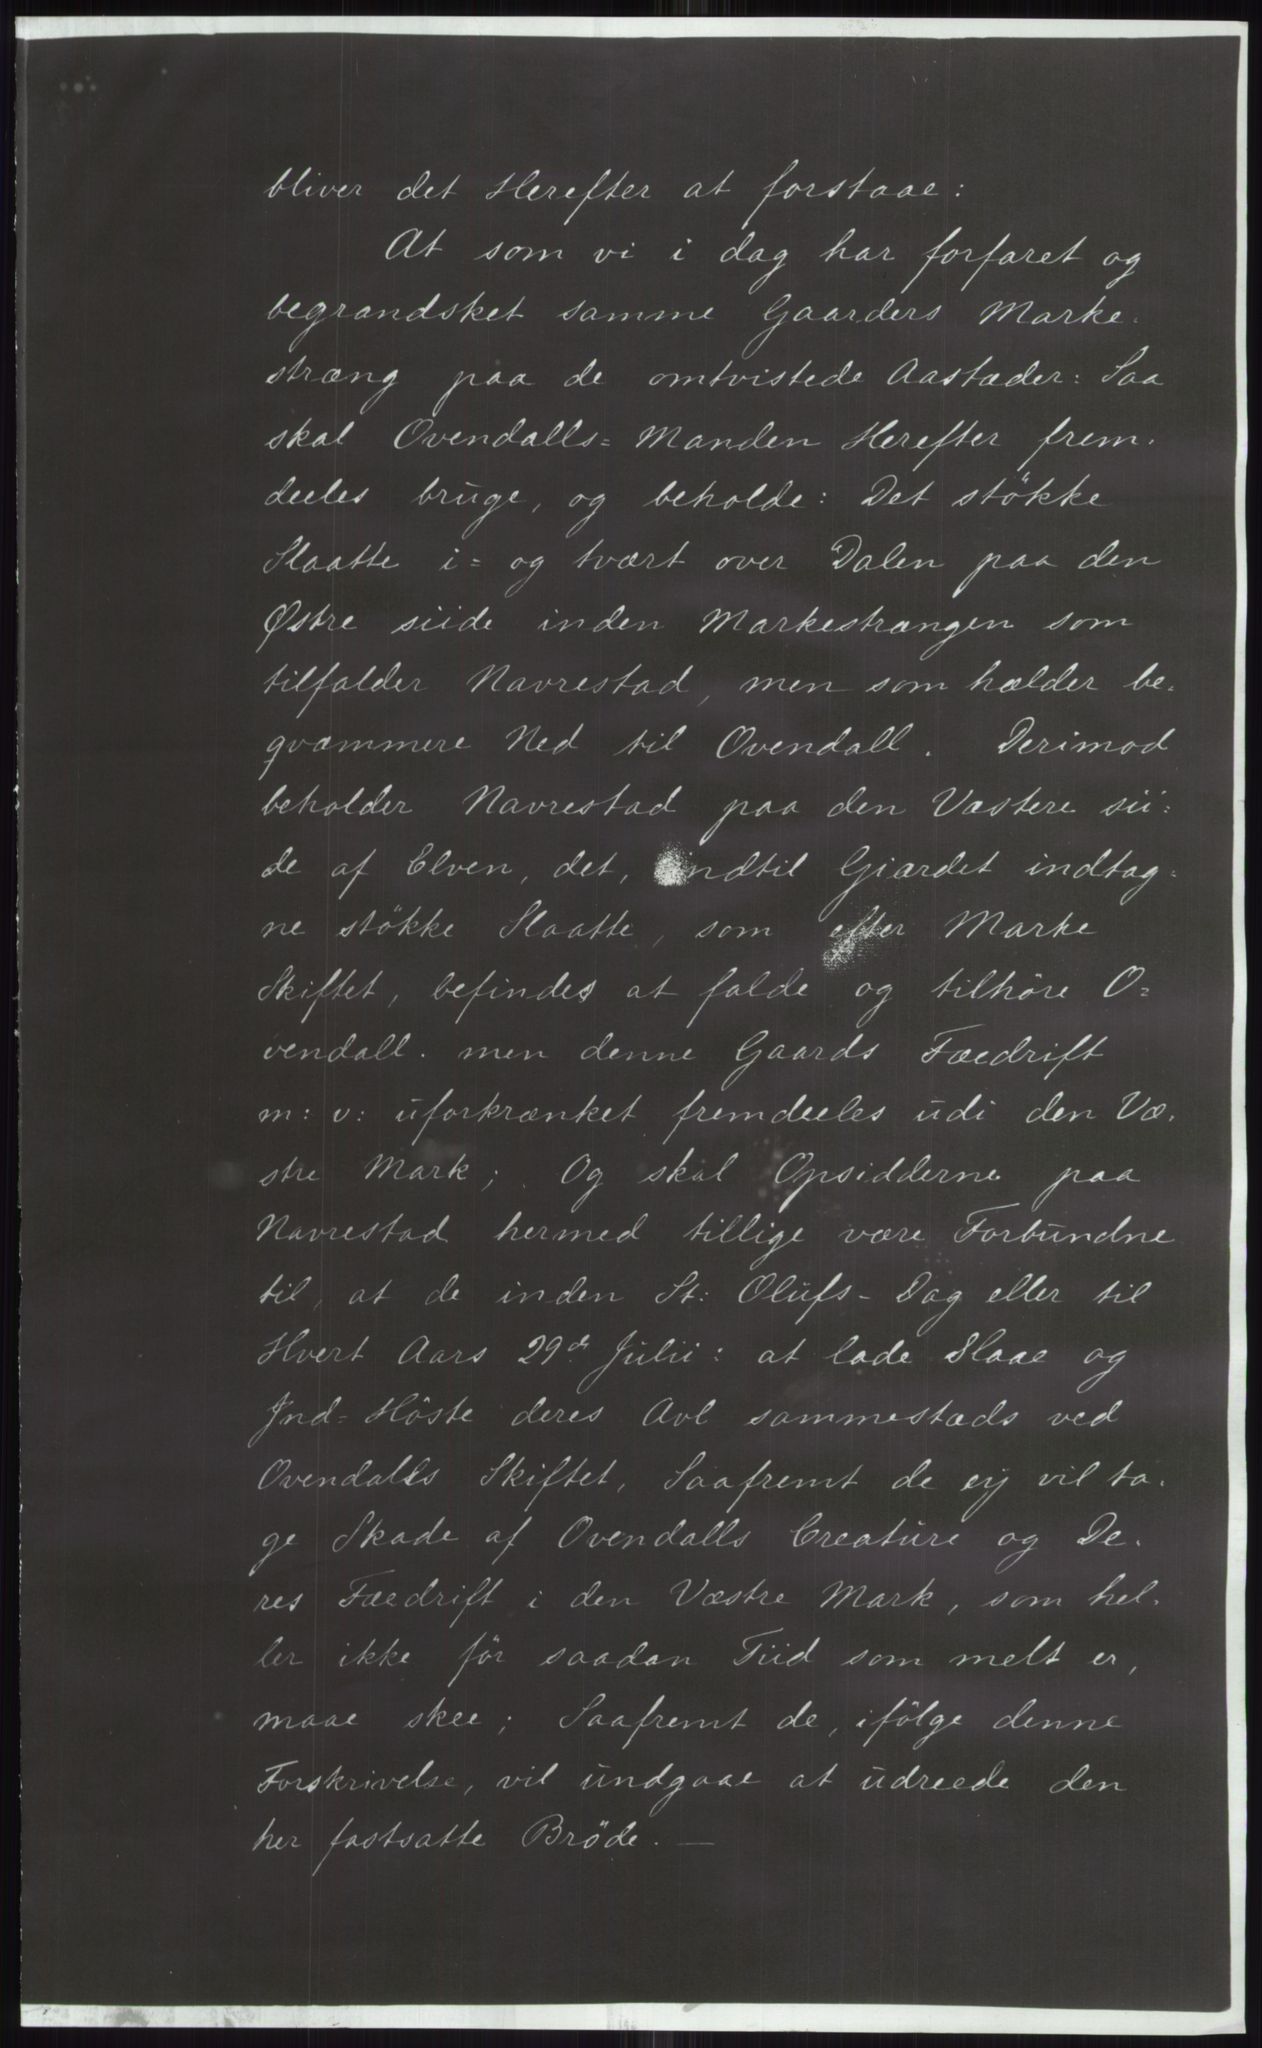 bliver det Herefter at forstaae:
At som vi i dag har forfaret og
begrandsket samme Gaarders Marke-
stræng paa de omtvistede Aastæder: Saa
skal Ovendalls= Manden Herefter frem-
deeles bruge, og beholde: Det stökke
Slaatte i= og tvært over Dalen paa den
Østre siide inden Markestrængen som
tilfalder Navrestad, men som hælder be-
qvæmmere Ned til Ovendall. Derimod
beholder Navrestad paa den Væstere sii-
de af Elven, det, indtil Giærdet indtag-
ne stökke Slaatte, som efter Marke
Skiftet, befindes at falde og tilhöre O=
vendall. men denne Gaards Fædrift
m: v: uforkrænket fremdeeles udi den Væ-
stre Mark; Og skal Opsidderne paa
Navrestad hermed tillige være Forbundne
til, at de inden St: Olufs- Dag eller til
Hvert Aars 29de Julii: at lade Slaae og
Ind= Höste deres Avl sammestæds ved
Ovendalls Skiftet, Saafremt de ey vil ta-
ge Skade af Ovendalls Creature og De-
res Fædrift i den Væstre Mark, som hel-
ler ikke för saadan Tiid som melt er,
maae skee; Saafremt de, ifölge denne
Forskrivelse, vil undgaae at udreede den
her fastsatte Bröde. —